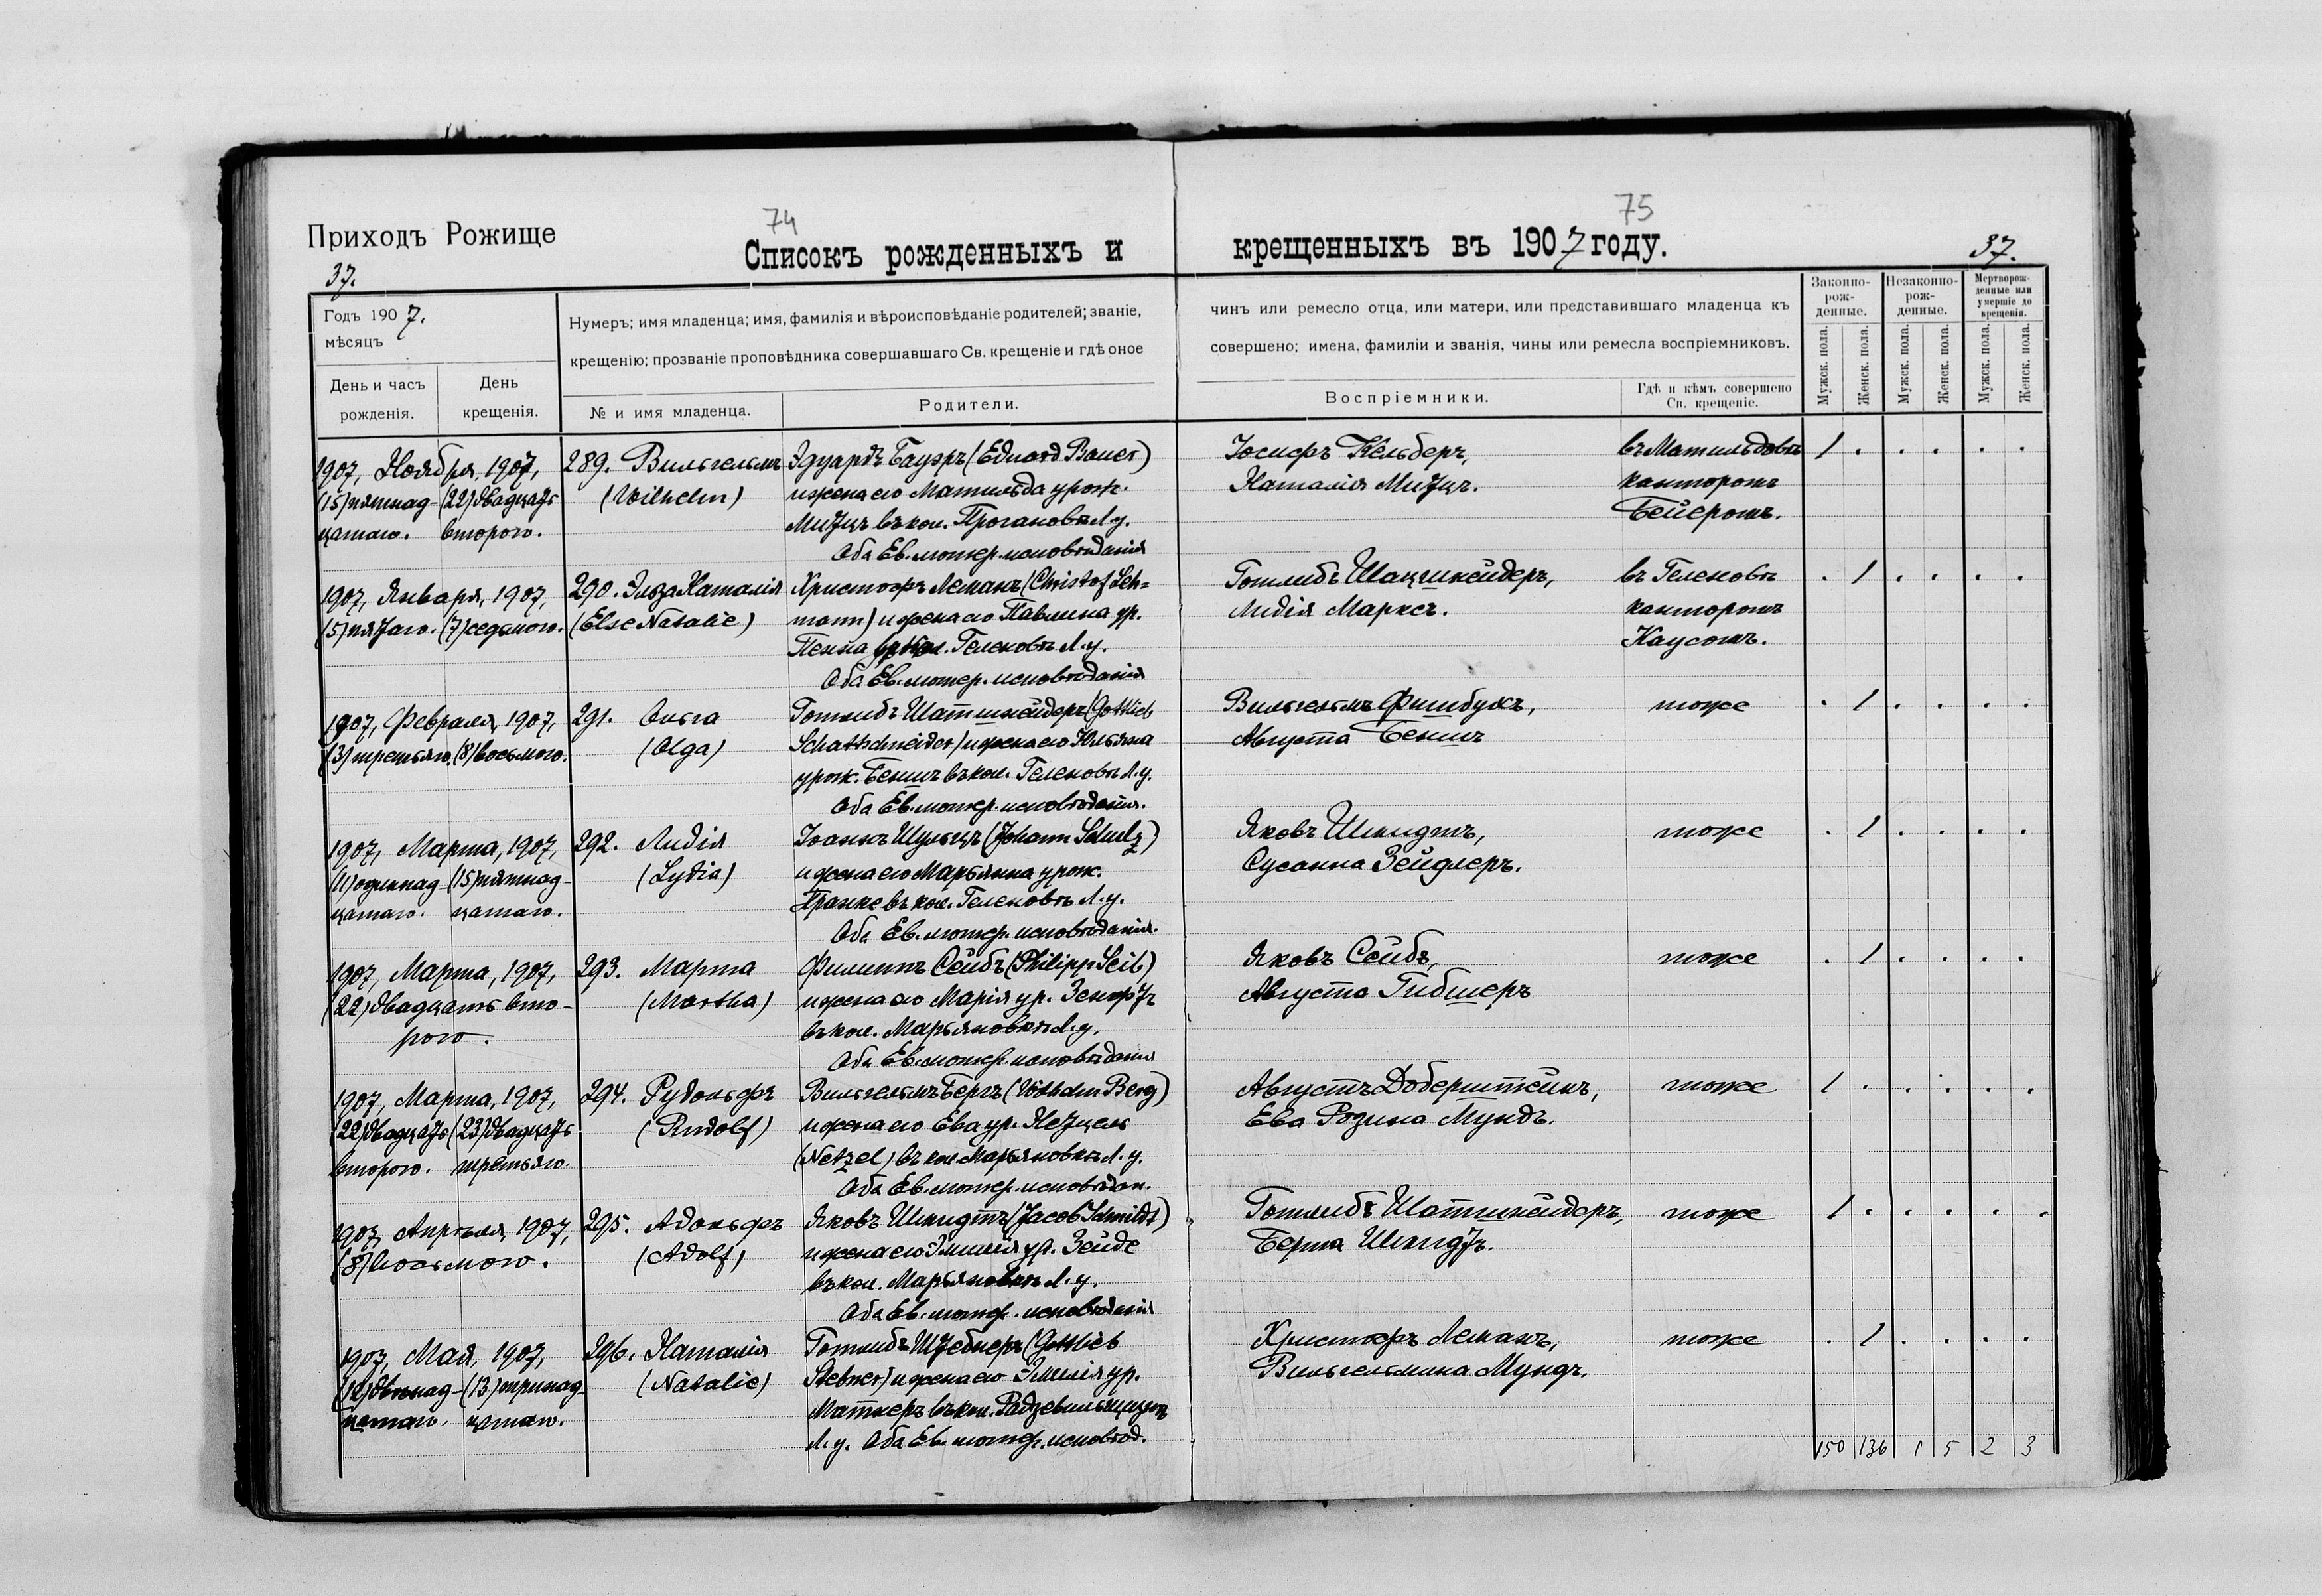 74
75
Приходъ Рожище
Списокъ рожденныхъ и
крещенныхъ въ 1907 году.
37.
37.
Годъ 1907.
мѣсяцъ
День и часъ
рожденія.
День
крещенія.
Нумеръ; имя младенца; имя, фамилія и вѣроисповѣданіе родителей; званіе,
крещенію; прозваніе проповѣдника совершавшаго Св. крещеніе и гдѣ оное
№ и имя младенца.
Родители.
чинъ или ремесло отца, или матери, или представившаго младенца къ
совершено; имена, фамиліи и званія, чины или ремесла воспріемниковъ.
Воспріемники.
Гдѣ и кѣмъ совершено
Св. крещеніе.
Законно-
рож-
денные.
Незаконно-
рож-
денные.
Мертворож-
денные или
умершіе до
крещенія.
Мужск. пола.
Женск. пола.
Мужск. пола.
Женск. пола.
Мужск. пола.
Женск. пола.
1907, Ноября, 1907,
(15) пятнад- (22) двадцать
цатаго. второго.
289. Вильгельмъ
(Wilhelm)
Эдуардъ Бауэръ (Eduard Bauer)
и жена его Матильда урож.
Митцъ въ кол. Л. у.
Оба Ев. лютер. исповѣданія
Іосифъ Кельберъ,
Наталія Митцъ.
въ Матильдовкѣ
канторомъ
Бейеромъ.
1 . . . . .
1907, Января, 1907,
(5) пятаго. (7) седьмого.
290. Эльза Наталія
(Else Natalie)
Христофъ Леманъ (Christof Leh=
mann) и жена его Павлина ур.
Пенна въ кол. Геленовкѣ Л. у.
Оба Ев. лютер. исповѣданія
Готлибъ Шатшнейдеръ,
Лидія Марксъ.
въ Геленовкѣ
канторомъ
Каусомъ.
. 1 . . . .
1907, Февраля, 1907,
(3) третьяго. (8) восьмого.
291. Ольга
(Olga)
Готлибъ Шатшнейдеръ (Gottlieb
Schattschneider) и жена его Юльяна
урож. Бенишъ въ кол. Геленовкѣ Л. у.
Оба Ев. лютер. исповѣданія.
Вильгельмъ Фишбухъ,
Августа Бенишъ
тоже
. 1 . . . .
1907, Марта, 1907,
(11) одиннад- (15) пятнад-
цатаго. цатаго.
292. Лидія
(Lydia)
Іоаннъ Шульцъ (Johann Schulz)
и жена его Марьянна урож.
Пранке въ кол. Геленовкѣ Л. у.
Оба Ев. лютер. исповѣданія.
Яковъ Шмидтъ,
Сусанна Зейдлеръ.
тоже
. 1 . . . .
1907, Марта, 1907,
(22) двадцать вто-
рого.
293. Марта
(Martha)
Филиппъ Сейбъ (Philipp Seib)
и жена его Марія ур.
въ кол. Марьяновкѣ Л. у.
Оба Ев. лютер. исповѣданія
Яковъ Сейбъ,
Августа Гибшеръ
тоже
. 1 . . . .
1907, Марта, 1907,
(22) двадцать (23) двадцать
второго. третьяго.
294. Рудольфъ
(Rudolf)
Вильгельмъ Бергъ (Wilhelm Berg)
и жена его Ева ур. Нетцель
(Netzel) въ кол. Марьяновкѣ Л. у.
Оба Ев. лютер. исповѣдан.
Августъ Доберштейнъ,
Ева Розина Мундъ.
тоже
1 . . . . .
1907, Апрѣля, 1907,
(8) восьмого.
295. Адольфъ
(Adolf)
Яковъ Шмидтъ (Jacob Schmidt)
и жена его Эмилія ур. Зейде
въ кол. Марьяновкѣ Л. у.
Оба Ев. лютер. исповѣданія
Готлибъ Шатшнейдеръ,
Берта Шмидтъ.
тоже
1 . . . . .
1907, Мая, 1907,
(12) двѣнад- (13) тринад-
цатаго. цатаго.
296. Наталія
(Natalie)
Готлибъ Штебнеръ (Gottlieb
Stebner) и жена его Эмилія ур.
въ кол.
Л. у. Оба Ев. лютер. исповѣд.
Христофъ Леманъ,
Вильгельмина Мундъ.
тоже
. 1 . . . .
150 136 1 5 2 3